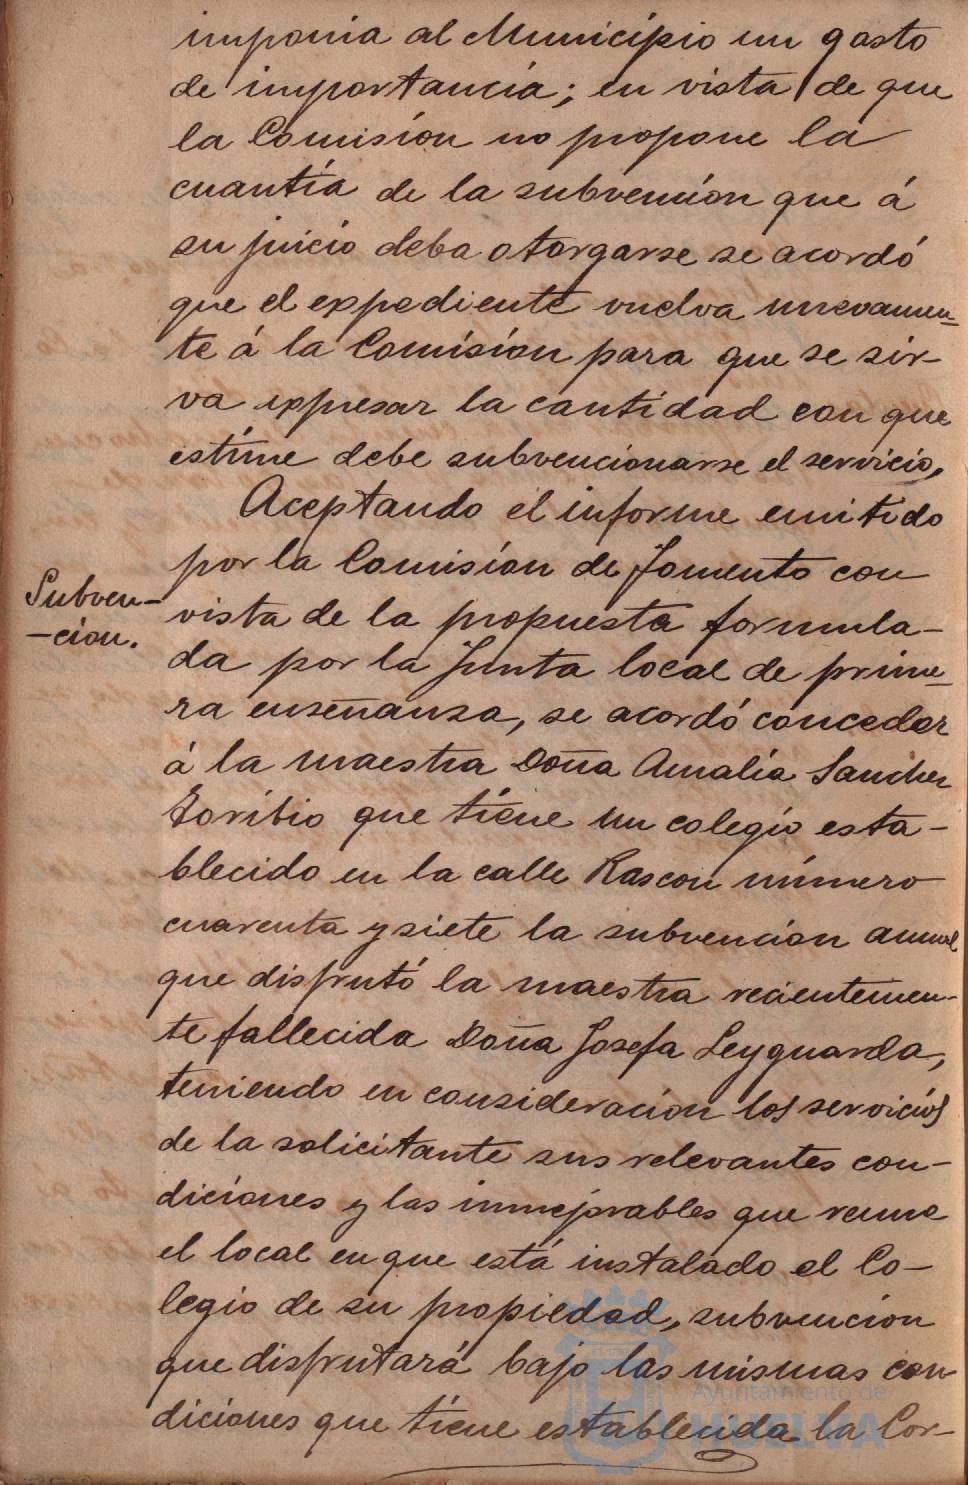 imponia al Municipio un gasto
de importancia; en vista de que
la Comision no propone la
cuantía de la subvencion que á
su juicio deba otorgarse se acordó
que el expediente vuelva nuevamen-
te á la Comision para que se sir-
va expresar la cantidad con que
estime debe subvencionarse el servicio,
Aceptando el informe emitido
por la Comision de Fomento con
Subven-
-cion.
vista de la propuesta formula-
da por la Junta local de prime-
ra enseñansa, se acordó conceder
á la maestra Doña Amalia Sanchez
Toribio que tiene un colegio esta-
blecido en la calle Rascon número
cuarenta y siete la subvencion anual
que disfrutó la maestra recientemen-
te fallecida Doña Josefa Leyguarda,
teniendo en consideracion los servicios
de la solicitante sus relevantes con-
diciones y las inmejorables que reune
el local en que está instalado el Co-
legio de su propiedad, subvencion
que disfrutará bajo las mismas con
diciones que tiene establecida la Cor-
Ayuntamiento de
HUELVA